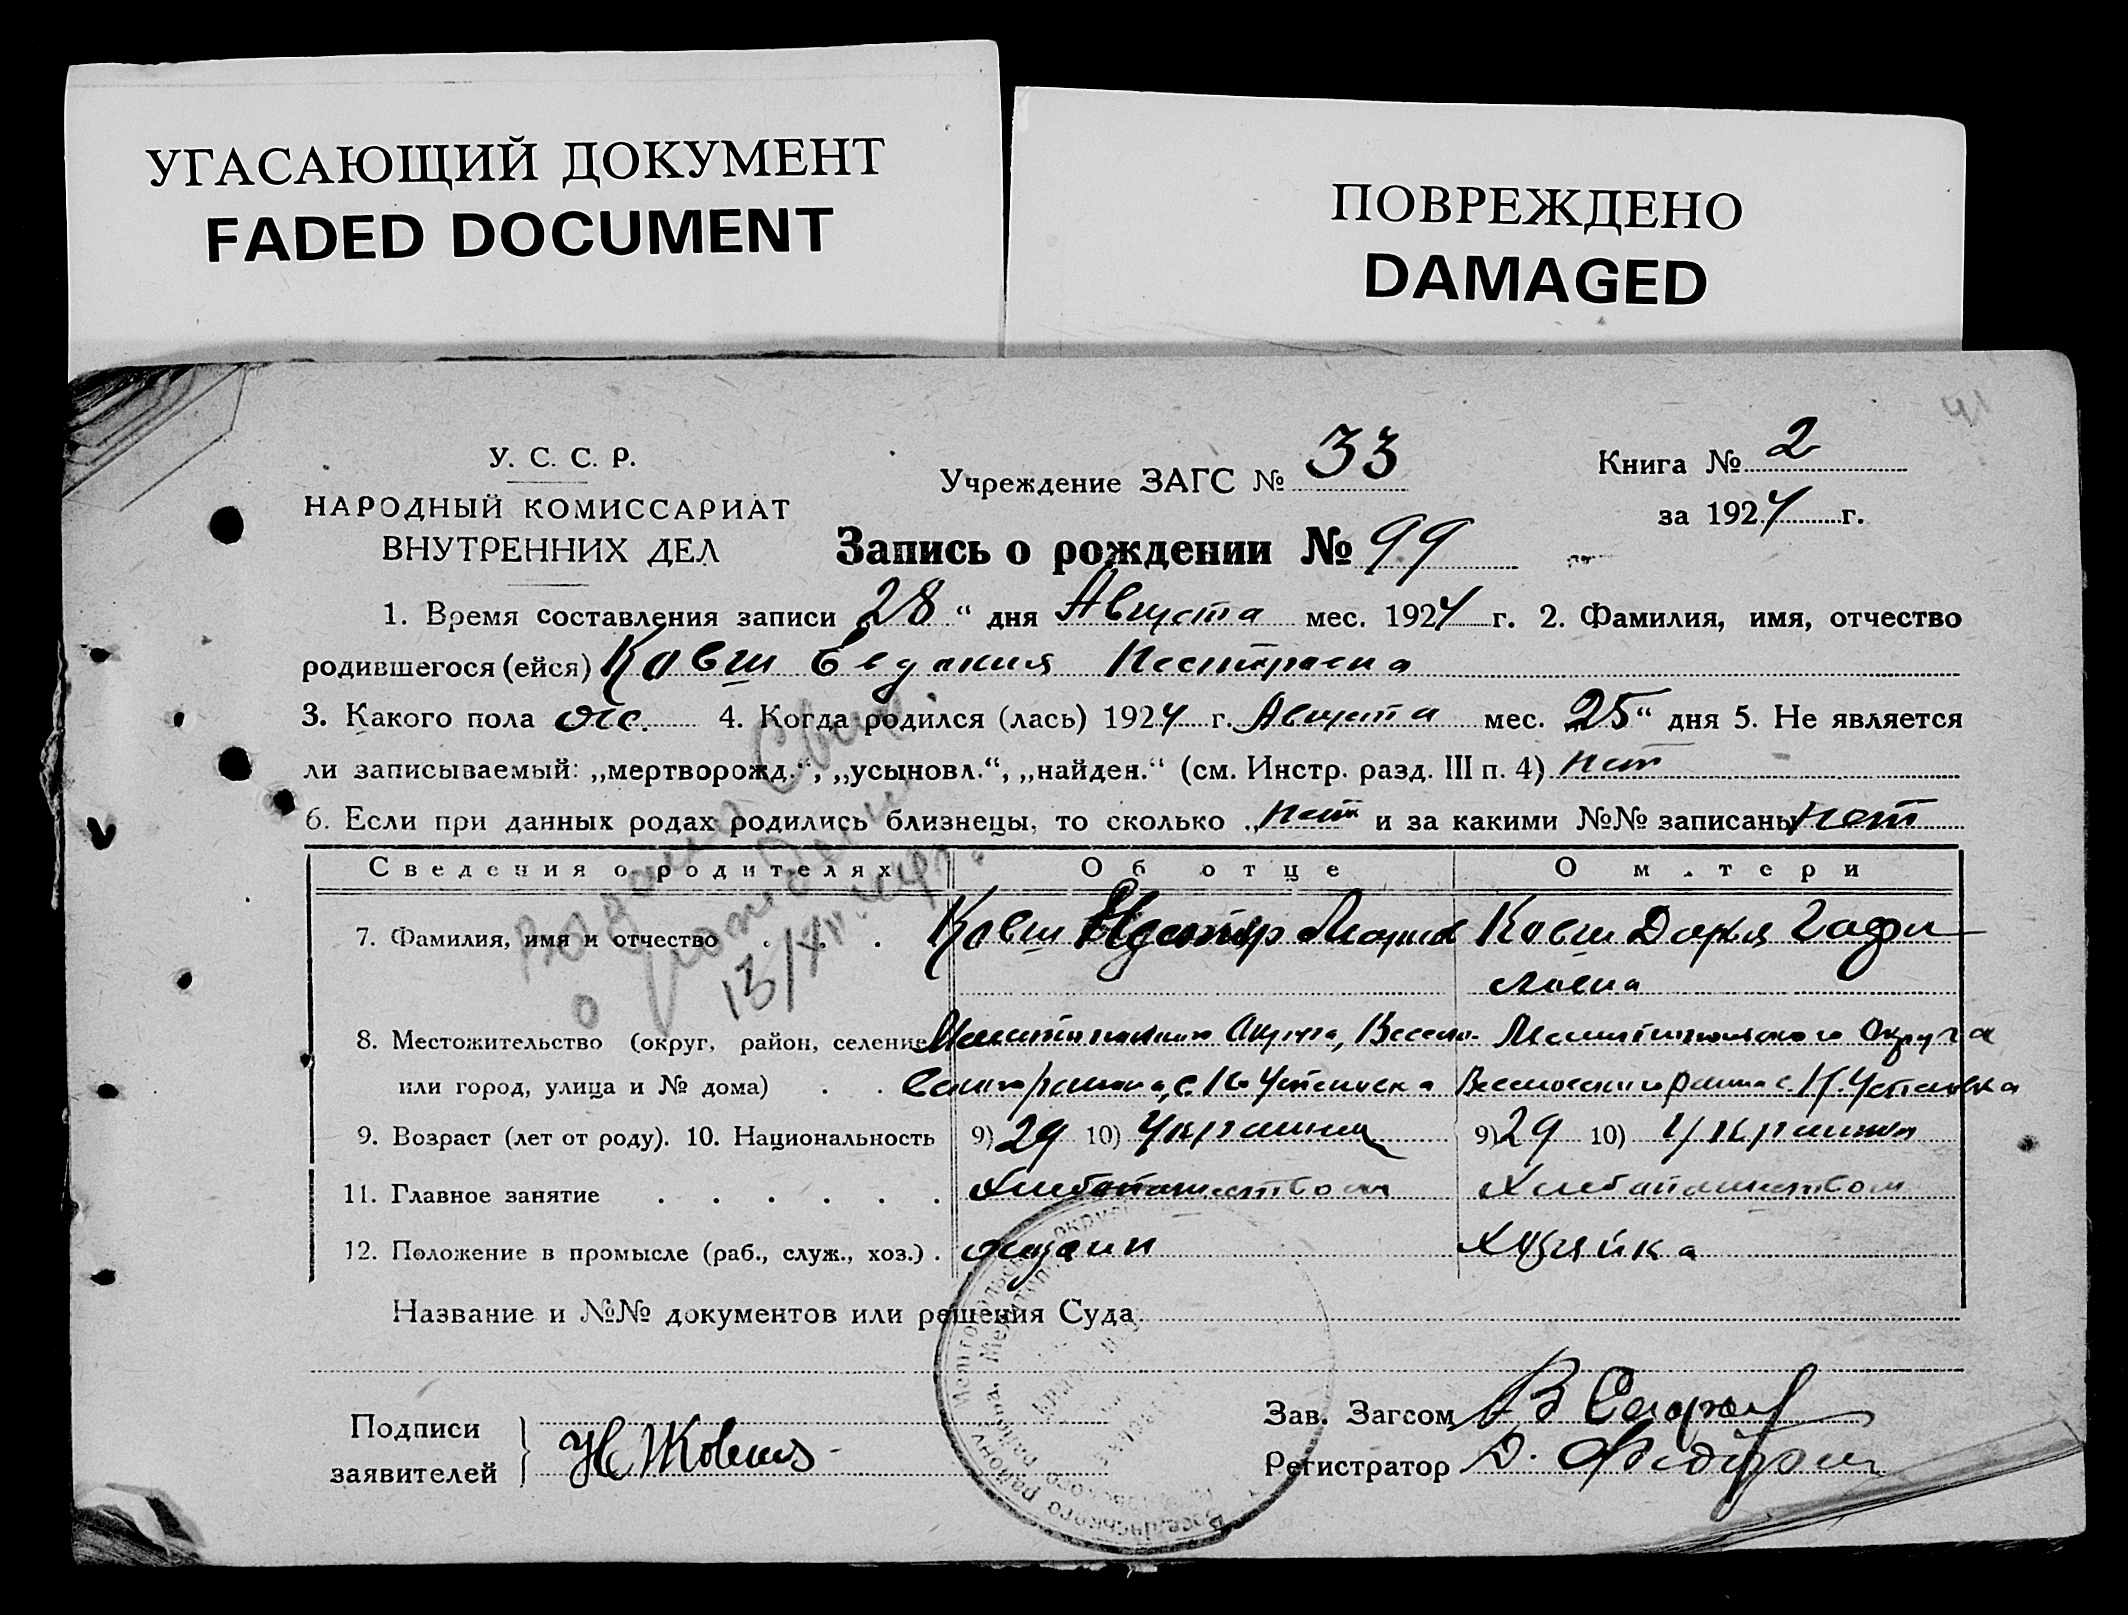 УГАСАЮЩИЙ ДОКУМЕНТ
FADED DOCUMENT
ПОВРЕЖДЕНО
DAMAGED
41
У. С. С. Р.
НАРОДНЫЙ КОМИССАРИАТ
ВНУТРЕННИХ ДЕЛ
Учреждение ЗАГС № 33
Книга № 2
за 1924 г.
Запись о рождении № 99
1. Время составления записи 28 " дня Августа мес. 1924 г. 2. Фамилия, имя, отчество
родившегося (ейся) Ковш Евдокия Несторовна
3. Какого пола ж. 4. Когда родился (лась) 1924 г. Августа мес. 25 " дня 5. Не является
ли записываемый: „мертворожд.", „усыновл.", „найден." (см. Инстр. разд. III п. 4) нет
6. Если при данных родах родились близнецы, то сколько „ нет и за какими №№ записаны нет
Сведения о родителях Об отце О матери
7. Фамилия, имя и отчество . . . Ковш Нестор Ковш Дарья Гаври
ловна
8. Местожительство (округ, район, селение Мелитопольского Округа, Весело- Мелитопольского Округа
или город, улица и № дома) . . района, с. Веселовского района с.
9. Возраст (лет от роду). 10. Национальность 9) 29 10) Украинец 9) 29 10) Украинка
11. Главное занятие . . . . . . Хлебопашеством Хлебопашеством
12. Положение в промысле (раб., служ., хоз.) . хозяин хозяйка
Название и №№ документов или решения Суда
Выдано Свид.
о рождении
13/XII
Подписи
заявителей
Н Ковш
Зав. Загсом В
Регистратор Д.